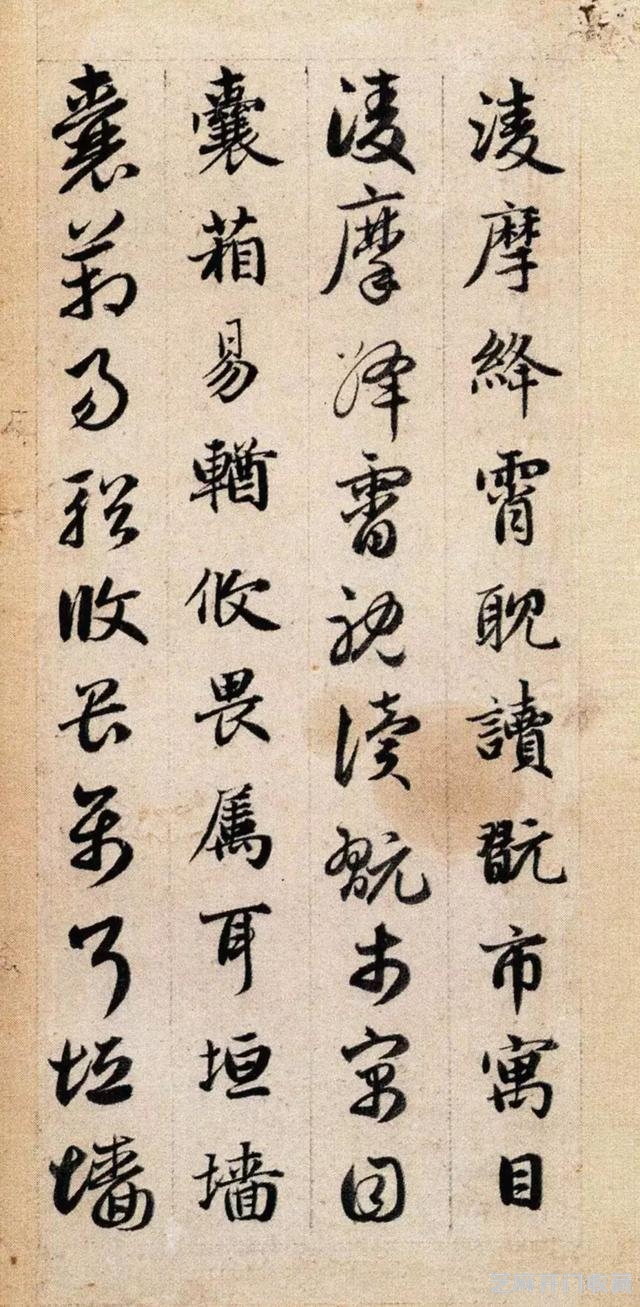 淩摩絳霄耽讀翫市寓目
淩摩絳霄耽讀翫市寓目
囊葙易輶攸畏屬耳垣墻
囊葙易輶攸畏屬耳垣墻